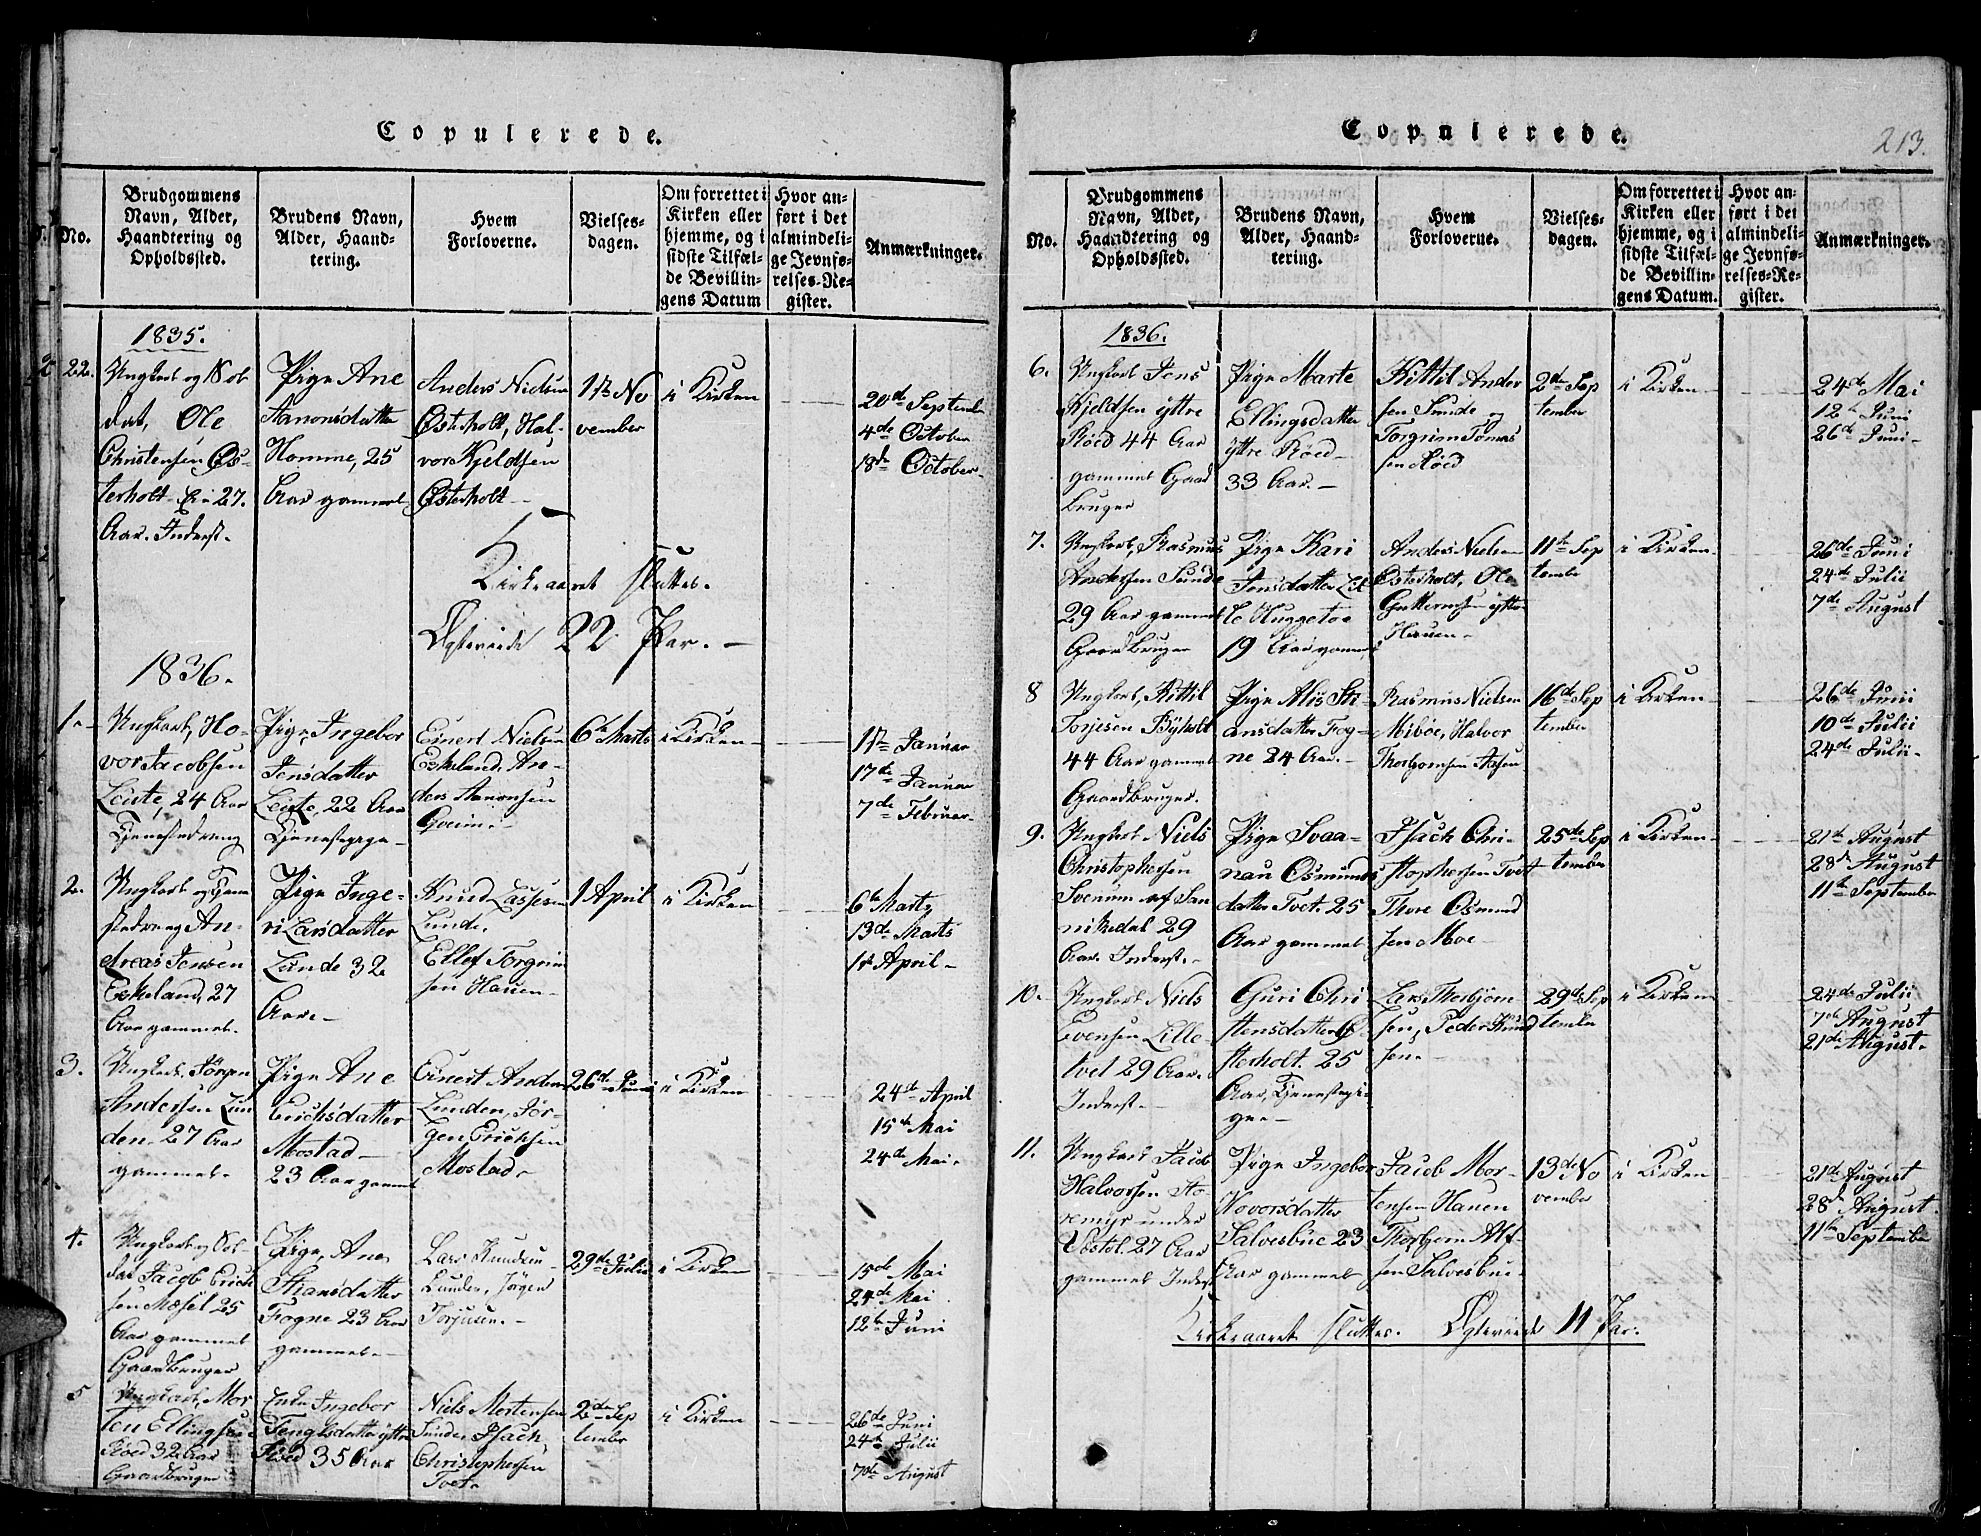 Copulerede.
No.
Brudgommens Navn, Alder, Haandtering og Opholdssted.
Brudens Navn, Alder, Haandtering.
Hvem Forloverne.
Vielsesdagen.
Om forrettet i Kirken eller hjemme, og i sidste Tilfælde Bevillingens Datum
Hvor anført i det almindelige Jevnførelses-Register.
Anmærkninger.
1835.
22.
Ungkarl og Soldat, Ole
Christensen Østerholt
27.
Aar. Inderst.
Pige Ane
Aanonsdatter
Homme, 25
Aar gammel
Anders Nielsen
Østerholt, Halvor
Kjeldsen
Østerholt
1ste November
i Kirken
20de September
4de October
18de October
Kirkeaaret sluttes.
Egteviede 22 Par.
1836.
1.
Ungkarl, Hovor
Jacobsen
Leiste, 24 Aar
Tjenestedreng
Pige Ingebor
Jensdatter
Leiste, 22 Aar
Tjenestepige
Einert Nielsen
Eskeland, Anders
Aanonsen
6te Marts
i Kirken
1ste Januar
17de Januar
7de Februar
2.
Ungkarl og Tjenestedreng
Andreas Jensen
Eskeland, 27
Aar gammel.
Pige Ingeri
Larsdatter
Lunde 32
Aar.
Knud Lassesen
Lunde.
Ellef Torgrimsen
Hauen
1 April
i Kirken
6te Marts
13de Marts
1ste April
3.
Ungkarl Jörgen
Andersen Lunden
27 Aar
gammel.
Pige Ane
Erichsdatter
Mostad
23 Aar gammel
Einert Anders
Lunden, Jörgen
Erichsen
Mostad
26de Juni
i Kirken
24de April
15de Mai
24de Mai.
4.
Ungkarl og Soldat
Jacob Erichsen
Mæsel 25
Aar gammel
Gaardbruger
Pige Ane
Stiansdatter
Fogne 23 Aar
gammel
Lars Knudsen
Lunden, Jörgen
Torjusen.
29de Julii
i Kirken
15de Mai
24de Mai
12te Juni
5
Ungkarl, Morten
Ellingsen
Röed 32 Aar
Gaardbruger
Enke Ingebor
Röed 35 Aar
Niels Mortensen
Sunde, Isach
Christophersen
Tvet.
2de September
i Kirken
26de Juni
24de Julii
7de August
Copulerede.
213.
No.
Brudgommens Navn, Alder, Haandtering og Opholdssted.
Brudens Navn, Alder, Haandtering.
Hvem Forloverne.
Vielsesdagen.
Om forrettet i Kirken eller hjemme, og i sidste Tilfælde Bevillingens Datum.
Hvor anført i det almindelige Jevnførelses-Register.
Anmærkninger.
1836.
6.
Ungkarl Jens
Kjeldsen yttre
Röed 44 Aar
gammel Gaardbruger
Pige Marte
Ellingsdatter
yttre Röed
33 Aar.
Kittil Andersen
Sunde og
Torgrim Tomassen
Röed
2de September
i Kirken
24de Mai
12te Juni
26de Juni
7.
Ungkarl, Rasmus
Andersen Sunde
29 Aar gammel
Gaardbruger
Pige Kari
Jensdatter Lille
Huggetoe
19 Aar gammel
Anders Nielsen
Österholt, Ole
Guttormsen yttre
Hauen
11te September
i Kirken
26de Juni
24de Julii
7de August
8
Ungkarl, Kittil
Torjesen Byholt
44 Aar gammel
Gaardbruger.
Pige Alis Stiansdatter
Fogne
24 Aar.
Rasmus Nielsen
Miböe, Halvor
16de September
i Kirken
26de Junii
10de Julii
24de Julii
9.
Ungkarl Niels
Christophersen
Svenum af Sannikedal
29
Aar. Inderst.
Pige Svaanau
Osmundsdatter
Tvet. 25
Aar gammel
Isach Christophersen
Tvet
Thore Osmundsen
Moe
25de September
i Kirken
21de August
28de August
11te September
10.
Ungkarl Niels
Evensen Lilletvet
29 Aar.
Inderst.
Guri Christensdatter
Österholt. 25
Aar, Tjenestepige
Lars Thorbjörnsen,
Peder Knudsen
29de September
i Kirken
24de Julii
7de August
21de August.
11.
Ungkarl Jacob
Halvorsen
under
27 Aar
gammel Inderst
Pige Ingebor
Hovorsdatter
Salvesbue 23
Aar gammel
Jacob Mortensen
Hauen
Thorbjörn Alfsen
Salvesbue
13de November
i Kirken
21de August
28de August
11te September
Kirkeaaret sluttes. Egteviede 11 Par.